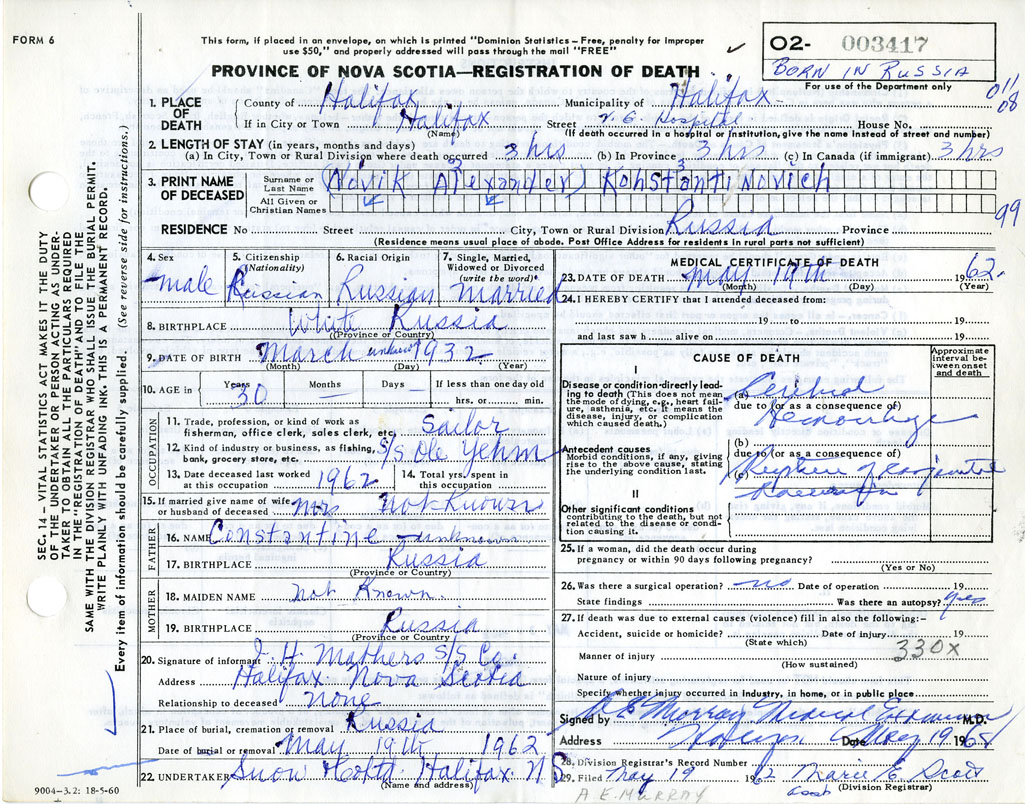 FORM 6
This form, if placed in an envelope, on which is printed "Dominion Statistics – Free, penalty for improper
use $50," and properly addressed will pass through the mail "FREE"
O2- 003417
BORN IN RUSSIA
For use of the Department only
PROVINCE OF NOVA SCOTIA—REGISTRATION OF DEATH
011
08
1. PLACE OF DEATH
County of Halifax Municipality of Halifax
If in City or Town Halifax Street V. G. Hospital House No.
(Name) (If death occurred in a hospital or Institution, give the name Instead of street and number)
2. LENGTH OF STAY (in years, months and days)
(a) In City, Town or Rural Division where death occurred 3 hrs (b) In Province 3 hrs (c) In Canada (if immigrant) 3 hrs
3 3
3. PRINT NAME OF DECEASED
Surname or Last Name (Novik Alexander) Konstantinovich
All Given or Christian Names
99
RESIDENCE No Street City, Town or Rural Division Russia Province
(Residence means usual place of abode. Post Office Address for residents in rural parts not sufficient)
4. Sex 5. Citizenship (Nationality) 6. Racial Origin 7. Single, Married, Widowed or Divorced (write the word)
male Russian Russian Married
8. BIRTHPLACE White Russia
(Province or Country)
9. DATE OF BIRTH March unknown 1932
(Month) (Day) (Year)
10. AGE in Years Months Days If less than one day old
30 — — hrs. or min.
OCCUPATION
11. Trade, profession, or kind of work as
fisherman, office clerk, sales clerk, etc. Sailor
12. Kind of industry or business, as fishing,
bank, grocery store, etc. S/S Ole Yehm
13. Date deceased last worked at this occupation 1962 14. Total yrs. spent in this occupation
15. If married give name of wife
or husband of deceased Mrs Not Known
FATHER
16. NAME Constantine - unknown
17. BIRTHPLACE Russia
(Province or Country)
MOTHER
18. MAIDEN NAME not Known
19. BIRTHPLACE Russia
(Province or Country)
20. Signature of informant I. H. Mathers S/S Co.
Address Halifax Nova Scotia
Relationship to deceased None
21. Place of burial, cremation or removal Russia
Date of burial or removal May 19th 1962
22. UNDERTAKER Snow Co Ltd. Halifax NS
(Name and address)
9004–3.2: 18-5-60
MEDICAL CERTIFICATE OF DEATH
23. DATE OF DEATH May 19th 1962.
(Month) (Day) (Year)
24. I HEREBY CERTIFY that I attended deceased from:
19 to 19
and last saw h alive on 19
CAUSE OF DEATH
Approximate interval between onset and death
I
Disease or condition directly leading to death (This does not mean
the mode of dying, e.g., heart failure, asthenia, etc. It means the
disease, injury, or complication
which caused death.)
(a) Cerebral
due to (or as a consequence of)
Hemorrhage
Antecedent causes
Morbid conditions, if any, giving
rise to the above cause, stating
the underlying condition last.
(b)
due to (or as a consequence of)
(c) Rupture of
II
Other significant conditions
contributing to the death, but not
related to the disease or condition causing it.
25. If a woman, did the death occur during
pregnancy or within 90 days following pregnancy?
(Yes or No)
26. Was there a surgical operation? no Date of operation 19
State findings Was there an autopsy? Yes
27. If death was due to external causes (violence) fill in also the following:–
Accident, suicide or homicide? Date of injury 19
(State which)
330X
Manner of injury
(How sustained)
Nature of injury
Specify whether injury occurred in industry, in home, or in public place
Signed by A E Murray Medical Examiner M.D.
Address Halifax Date May 19 1962
28. Division Registrar's Record Number
29. Filed May 19 1962 Marie E. Scott
(Division Registrar)
A. E. MURRAY
SEC. 14 – VITAL STATISTICS ACT MAKES IT THE DUTY
OF THE UNDERTAKER OR PERSON ACTING AS UNDER-
TAKER TO OBTAIN ALL THE PARTICULARS REQUIRED
IN THE "REGISTRATION OF DEATH" AND TO FILE THE
SAME WITH THE DIVISION REGISTRAR WHO SHALL ISSUE THE BURIAL PERMIT.
WRITE PLAINLY WITH UNFADING INK. THIS IS A PERMANENT RECORD.
Every item of information should be carefully supplied. (See reverse side for instructions.)